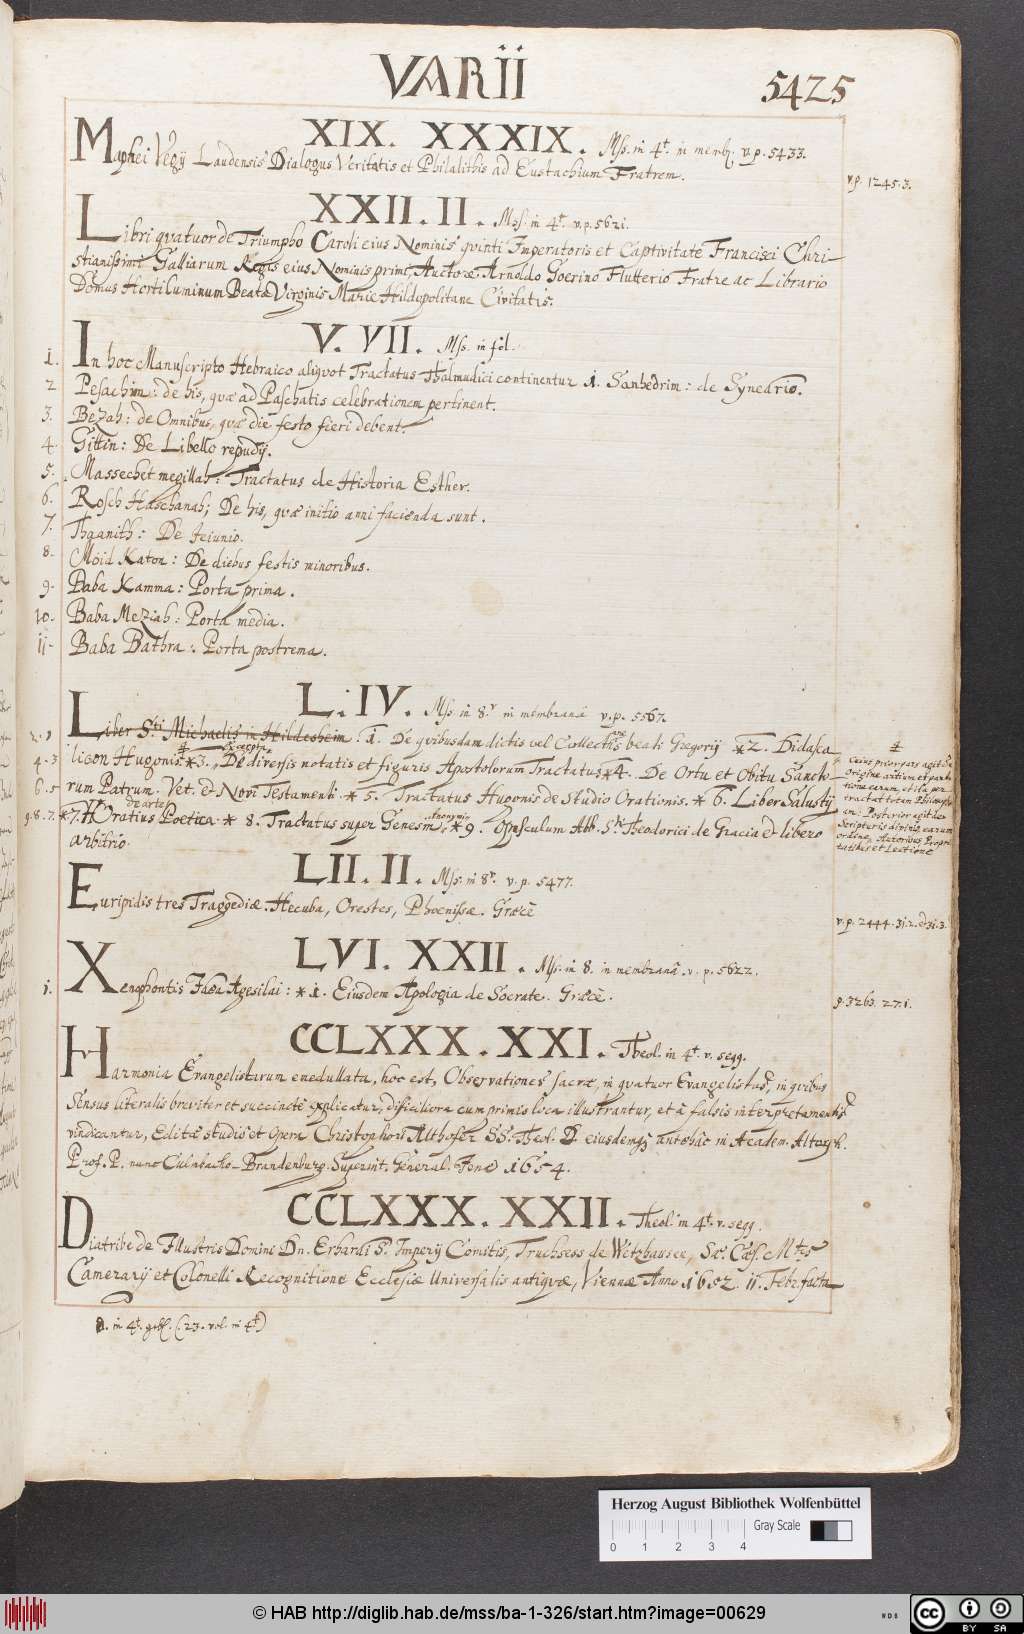 VARII
5425
XIX. XXXIX. Mss. in 4t. in memb. v. p. 5433.
Maphei Vegij Laudensis Dialogus Veritatis et Philalithis ad Eustachium Fratrem.
v.p. 1245.3.
XXII. II. Mss. in 4t. v.p. 5621.
Libri qvatuor de Triumpho Caroli eius Nominis qvinti Imperatoris et Captivitate Francisci Chri-
stianissimi Galliarum Regis eius Nominis primi, Auctore Arnoldo Goerino Flutterio Fratre ac Librario
Domus Horti luminum Beatæ Virginis Mariæ Hildopolitanæ Civitatis.
V. VII. Mss. in fol.
1. In hoc Manuscripto Hebraico aliqvot Tractatus Thalmudici continentur 1. Sanhedrim: de Synedrio.
2 Pesachim: de his, quæ ad Paschatis celebrationem pertinent.
3. Bezah: de Omnibus, quæ die festo fieri debent.
4. Gittin: De Libello repudij.
5. Massechet megillah: Tractatus de Historia Esther.
6. Rosch Haschanah; De his, quæ initio anni facienda sunt.
7. Thaanith: De Jeiunio.
8. Moid Katon: De diebus festis minoribus.
9. Baba Kamma: Porta prima.
10. Baba Meziah: Porta media.
11. Baba Bathra: Porta postrema.
L. IV. Mss in 8.v in membranâ v.p. 5567.
Liber Sti Michaelis in Hildesheim. 1. De qvibusdam dictis vel Collect. beati Gregorij *2. Didasca
licon Hugonis *3. Excerpta De diversis notatis et figuris Apostolorum Tractatus *4. De Ortu et Obitu Sancto
rum Patrum. Vet. & Novi Testamenti. * 5. Tractatus Hugonis de Studio Orationis. * 6. Liber Salustij
*7. Horatius de arte Poetica * 8. Tractatus super Genesin Anonymi, *9. Opusculum Abb. Sti Theodorici de Gracia & libero
arbitrio.
LII. II. Mss. in 8v. v. p. 5477.
Euripidis tres Tragœdiæ. Hecuba, Orestes, Phœnissæ. Græcè
v.p. 2444.31.2. & 31.3.
LVI. XXII. Mss. in 8. in membranâ. v. p. 5622.
1. Xenophontis Agesilai: * 1. Eiusdem Apologia de Socrate. Græcè.
p. 3263. 27.1.
CCLXXX. XXI. Theol. in 4t. v. segg.
Harmonia Evangelistarum enedullata, hoc est, Observationes sacræ, in qvatuor Evangelistas, in qvibus
Sensus literalis breviter et succinctè explicatur, dificiliora cum primis loca illustrantur, et â falsis interpretamentis
vindicantur, Editæ studiô et Opera Christophori Althofer SS. Theol. D. eiusdemq; antehâc in Academ. Altorph.
Prof. P. nunc Culmbacho-Brandenburg. Superint. General. Jenæ 1654.
CCLXXX. XXII. Theol. in 4t. v. segg.
Diatribe de Illustris Domini Dn. Erhardi S. Imperij Comitis, Truchsess de Wetzhausen, Sac. Cæs. Mtis
Camerarij et Colonelli Recognitione Ecclesiæ Universalis antiquæ, Viennæ Anno 1652. 11. Febr. facta
in 4t. gebl. (23. vol. in 4t)
Cuius prior pars agit de
Origine artium et parti
tione earum, et ita per
tractat totam Philosoph
iam: Posterior agit de
Scripturis divinis, earum
ordine, Autoribus Propri
tatibus et Lectione
Herzog August Bibliothek Wolfenbüttel
Gray Scale
0 1 2 3 4
© HAB http://diglib.hab.de/mss/ba-1-326/start.htm?image=00629
WDB
cc BY SA